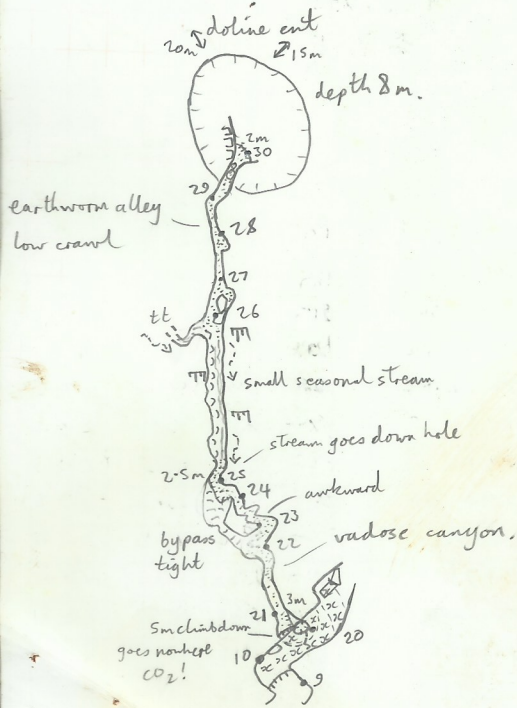 doline ent
20m
15m
depth 8m.
2m
30
29
earthworm alley
low crawl
28
27
26
tt
small seasonal stream
stream goes down hole
2.5m
25
24
awkward
23
22
vadose canyon.
bypass
tight
3m
21
5m climbdown
goes nowhere
CO2!
20
10
9